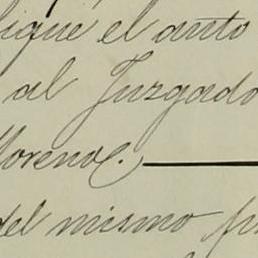 ique el auto
al Juzgado
Moreno.
del mismo